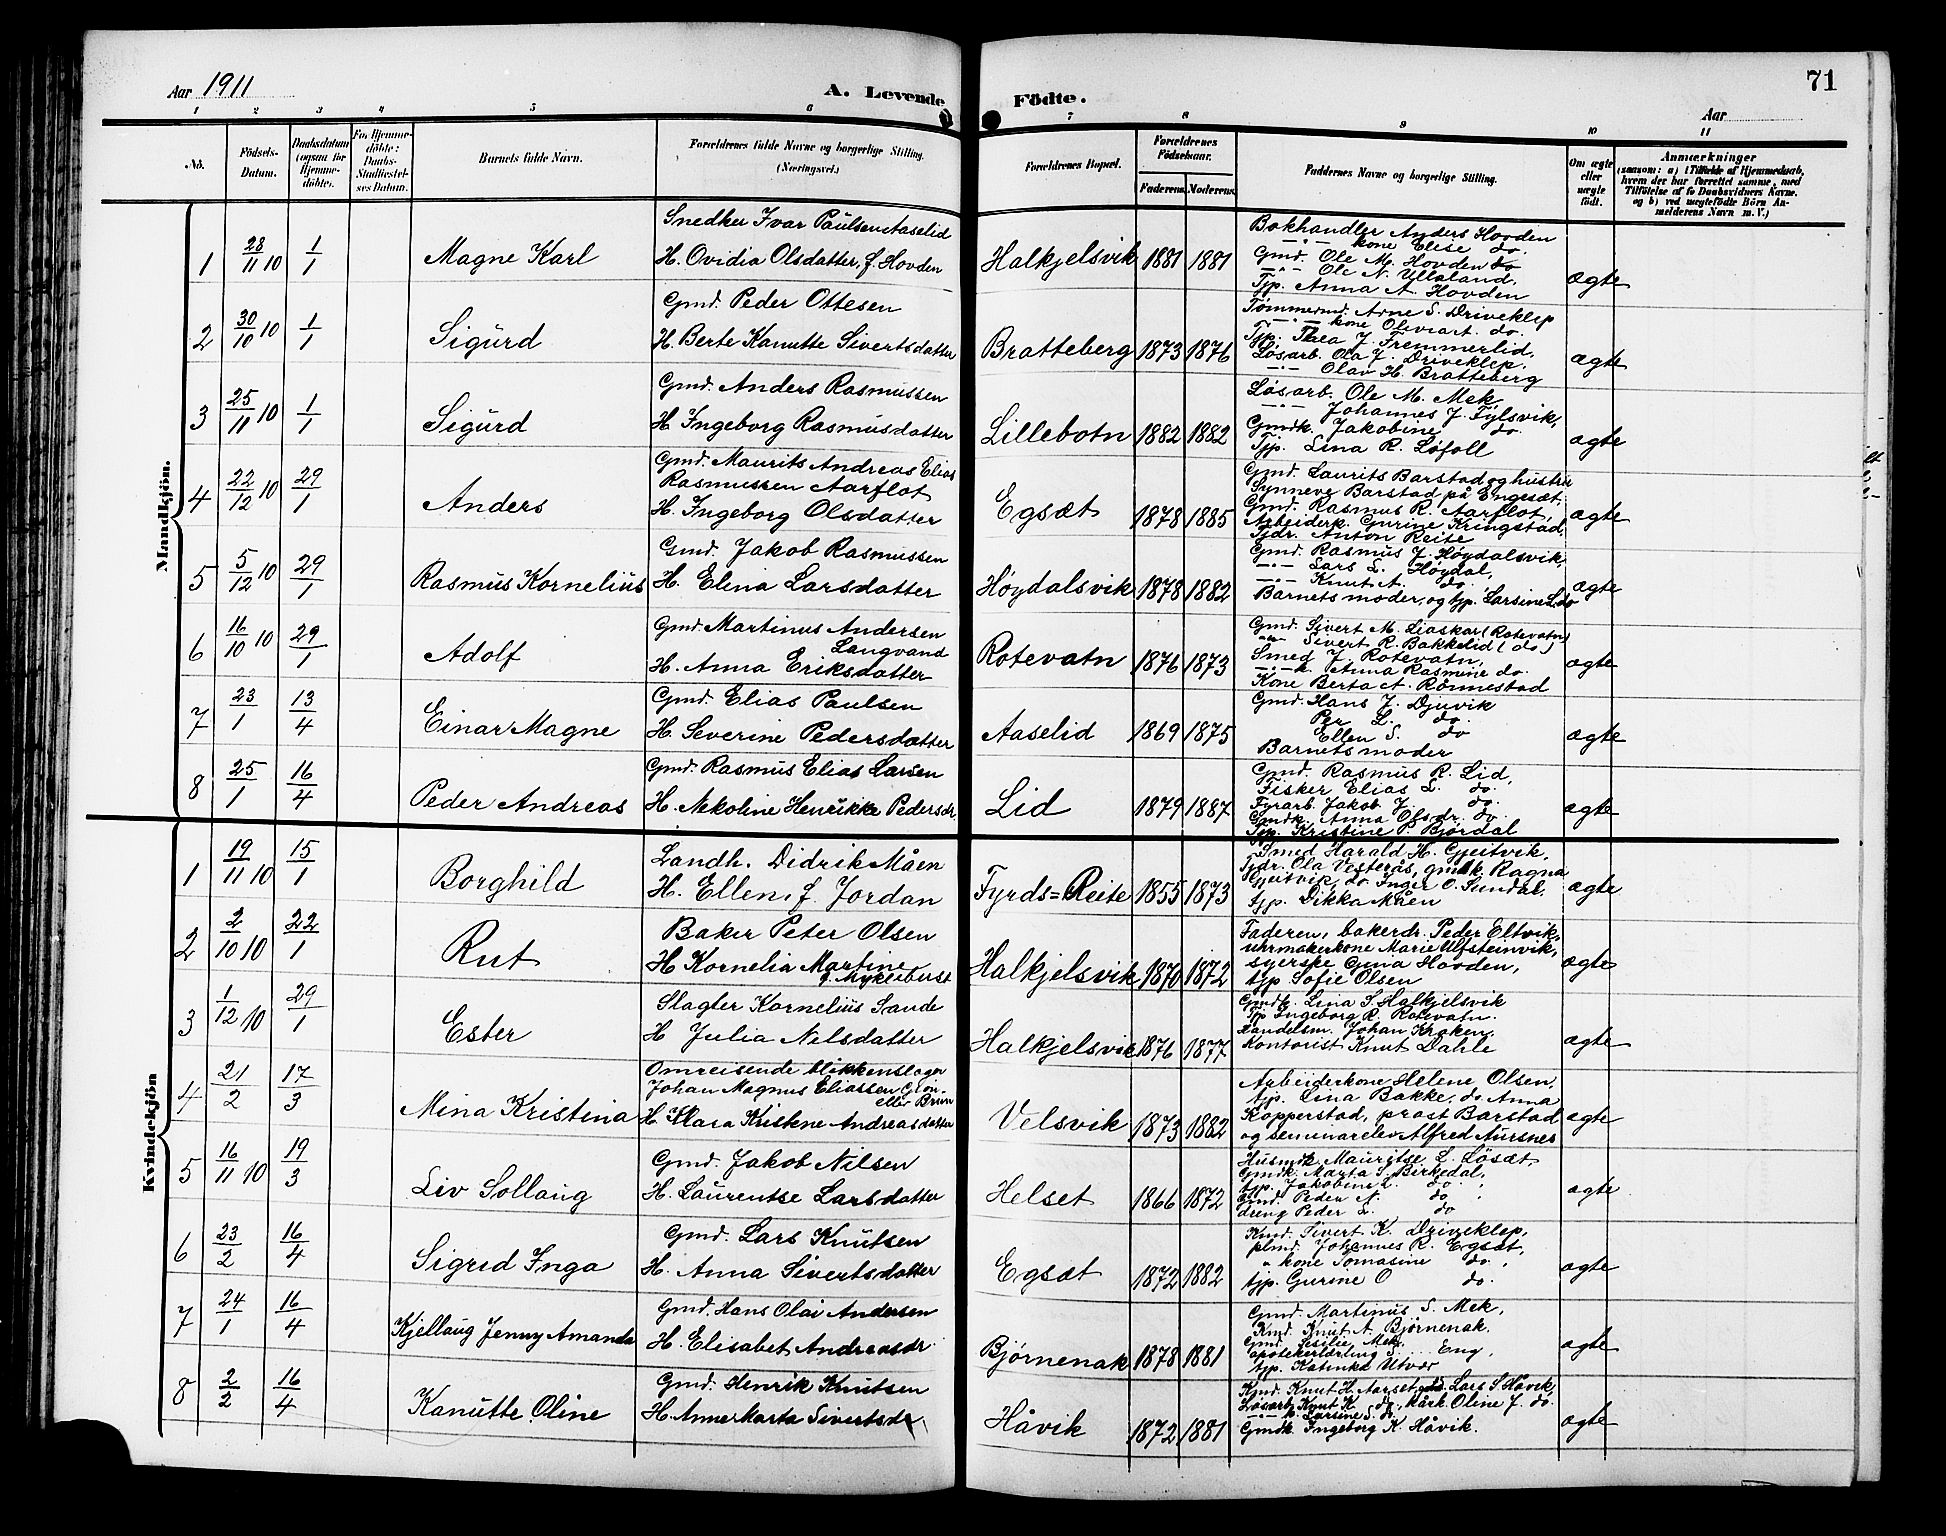 Aar 1911
A. Levende Födte.
71
Aar
1 2 3 4 5 6 7 8 9 10 11
No.
Födsels-Datum.
Daabsdatum (ogsaa for Hjemmedöbte).
For Hjemmedöbte: Daabs-Stadfæstelses Datum.
Barnets fulde Navn.
Forældrenes fulde Navne og borgerlige Stilling. (Næringsvei.)
Forældrenes Bopæl.
Forældrenes Födselsaar.
Faderens. Moderens.
Faddernes Navne og borgerlige Stilling.
Om ægte eller uægte födt.
Anmærkninger
(saasom: a) i Tilfælde af Hjemmedaab, hvem der har forrettet samme, med Tilföielse af to Daabsvidners Navne. og b) ved uægtefödte Börn Anmelderens Navn m. V.)
Mandkjön.
1 28/11 10 1/1 Magne Karl
Snedker Ivar Paulsen Aaselid
H. Ovidia Olsdatter, f. Hovden
Halkjelsvik 1881 1881
Bokhandler Anders Hovden
—"— kone Elise do.
Gmd. Ole M. Hovden do
—"— Ole N. Ulleland,
Tjp. Anna A. Hovden
ægte
2 30/10 10 1/1 Sigurd
Gmd. Peder Ottesen
H. Berte Kanutte Sivertsdatter
Bratteberg 1873 1876
Tømmermd. Arne S. Driveklep
—"— kone Oliviart. do.
Tjp. Thea J. Fremmerlid,
Løsarb. Ola J. Driveklep.
—"— Olav H. Bratteberg
ægte
3 25/11 10 1/1 Sigurd
Gmd. Anders Rasmussen
H. Ingeborg Rasmusdatter
Lillebotn 1882 1882
Løsarb. Ole M. Mek
—"— Johannes J. Fylsvik,
Gmdk. Jakobine do.
Tjp. Lina R. Løfoll
ægte
4 22/12 10 29/1 Anders
Gmd. Maurits Andreas Elias
Rasmussen Aarflot
H. Ingeborg Olsdatter
Egsæt 1878 1885
Gmd. Laurits Barstad og hustru
Synneve Barstad på Engesæt,
Gmd. Rasmus R. Aarflot,
Arbeiderk. Gurine Kringstad,
Tjdr. Anton Reite
ægte
5 5/12 10 29/1 Rasmus Kornelius
Gmd. Jakob Rasmussen
H. Elina Larsdatter
Høydalsvik 1878 1882
Gmd. Rasmus J. Høydalsvik,
—"— Lars L. Høydal,
—"— Knut A. do.
Barnets moder, og tjp. Larsine L. do
ægte
6 16/10 10 29/1 Adolf
Gmd. Martinus Andersen
Langvand
H. Anna Eriksdatter
Rotevatn 1876 1873
Gmd. Sivert M. Liaskar (Rotevatn)
—"— Sivert R. Bakkelid (do)
Smed J. Rotevatn,
—"— k. Anna Rasmine do.
Kone Berta A. Rønnestad
ægte
7 23/1 13/4 Einar Magne
Gmd. Elias Paulsen
H. Severine Pedersdatter
Aaselid 1869 1875
Gmd. Hans J. Djuvik
Per L. do.
Ellen S. do
Barnets moder
ægte
8 25/1 16/4 Peder Andreas
Gmd. Rasmus Elias Larsen
H. Nekoline Henrikke Pedersdr.
Lid 1879 1887
Gmd. Rasmus R. Lid,
Fisker Elias L. do.
Fyrarb. Jakob J. do.
Gmdk. Anna Olsdr. do.
Tjp. Kristine P. Bjørdal
ægte
Kvindekjön
1 19/11 10 15/1 Borghild
Landh. Didrik Måen
H. Ellen, f. Jordan
Fyrds=Reite 1855 1873
Smed Harald H. Gjeitvik,
Tjdr. Ola Vesterås, gmdk. Ragna
Gjeitvik, do Inger O. Sundal,
tjp. Dikka Måen
ægte
2 2/10 10 22/1 Rut
Baker Peter Olsen
H Kornelia Martine
f. Myklebust
Halkjelsvik 1870 1872
Faderen, bakerdr. Peder Eltvik,
uhrmakerkone Marie Ulfsteinvik,
syerske Gina Hovden,
tjp. Sofie Olsen
ægte
3 1/12 10 29/1 Ester
Slagter Kornelius Sande
H Julia Nilsdatter
Halkjelsvik 1876 1877
Gmdk. Lina S. Halkjelsvik
Tjp Ingeborg R. Rotevatn.
Handelsm. Johan Kroken.
Kontorist Knut Dahle
ægte
4 21/2 17/3 Mina Kristina
Omreisende blikkenslager
Johan Magnus Eliassen Grön-
eller Brun
H. Klara Kristene Andreasdatter
Velsvik 1873 1882
Arbeiderkone Helene Olsen,
tjp. Lina Bakke, do. Anna
Kopperstad, prost Barstad
og seminarelev Alfred Aursnes
ægte
5 16/11 10 19/3 Liv Sollaug
Gmd. Jakob Nilsen
H. Laurentse Larsdatter
Helset 1866 1872
Husmdk. Mauritse L. Løsæt,
Gmdk. Marta S. Birkedal,
tjp. Jakobine L. do.
Gmd. Peder N. do
dreng Peder L. do
ægte
6 23/2 16/4 Sigrid Inga
Gmd. Lars Knutsen
H. Anna Sivertsdatter
Egsæt 1872 1882
Kmd. Sivert K. Driveklep,
plmd. Johannes R. Egsæt,
" kone Tomasine do.,
tjp. Gurine O do.
ægte
7 24/1 16/4 Kjellaug Jenny Amanda
Gmd. Hans Olai Andersen
H. Elisabet Andreasdr.
Bjørnenak 1878 1881
Gmd. Martinus S. Mek,
Kmd. Knut A. Bjørnenak.
Gmd. Mek,
apotekerlærling S. Eng,
tjp. Katinka Utvær
ægte
8 2/2 16/4 Kanutte Oline
Gmd. Henrik Knutsen
H. Anne Marta Sivertsdr
Håvik 1872 1881
Kmd. Knut H. Aarset, Lars S. Håvik,
Løsarb. Knut K. do., Oline J. do.
—"— k. Larsine S. do.
Gmdk. Ingeborg K. Håvik.
ægte